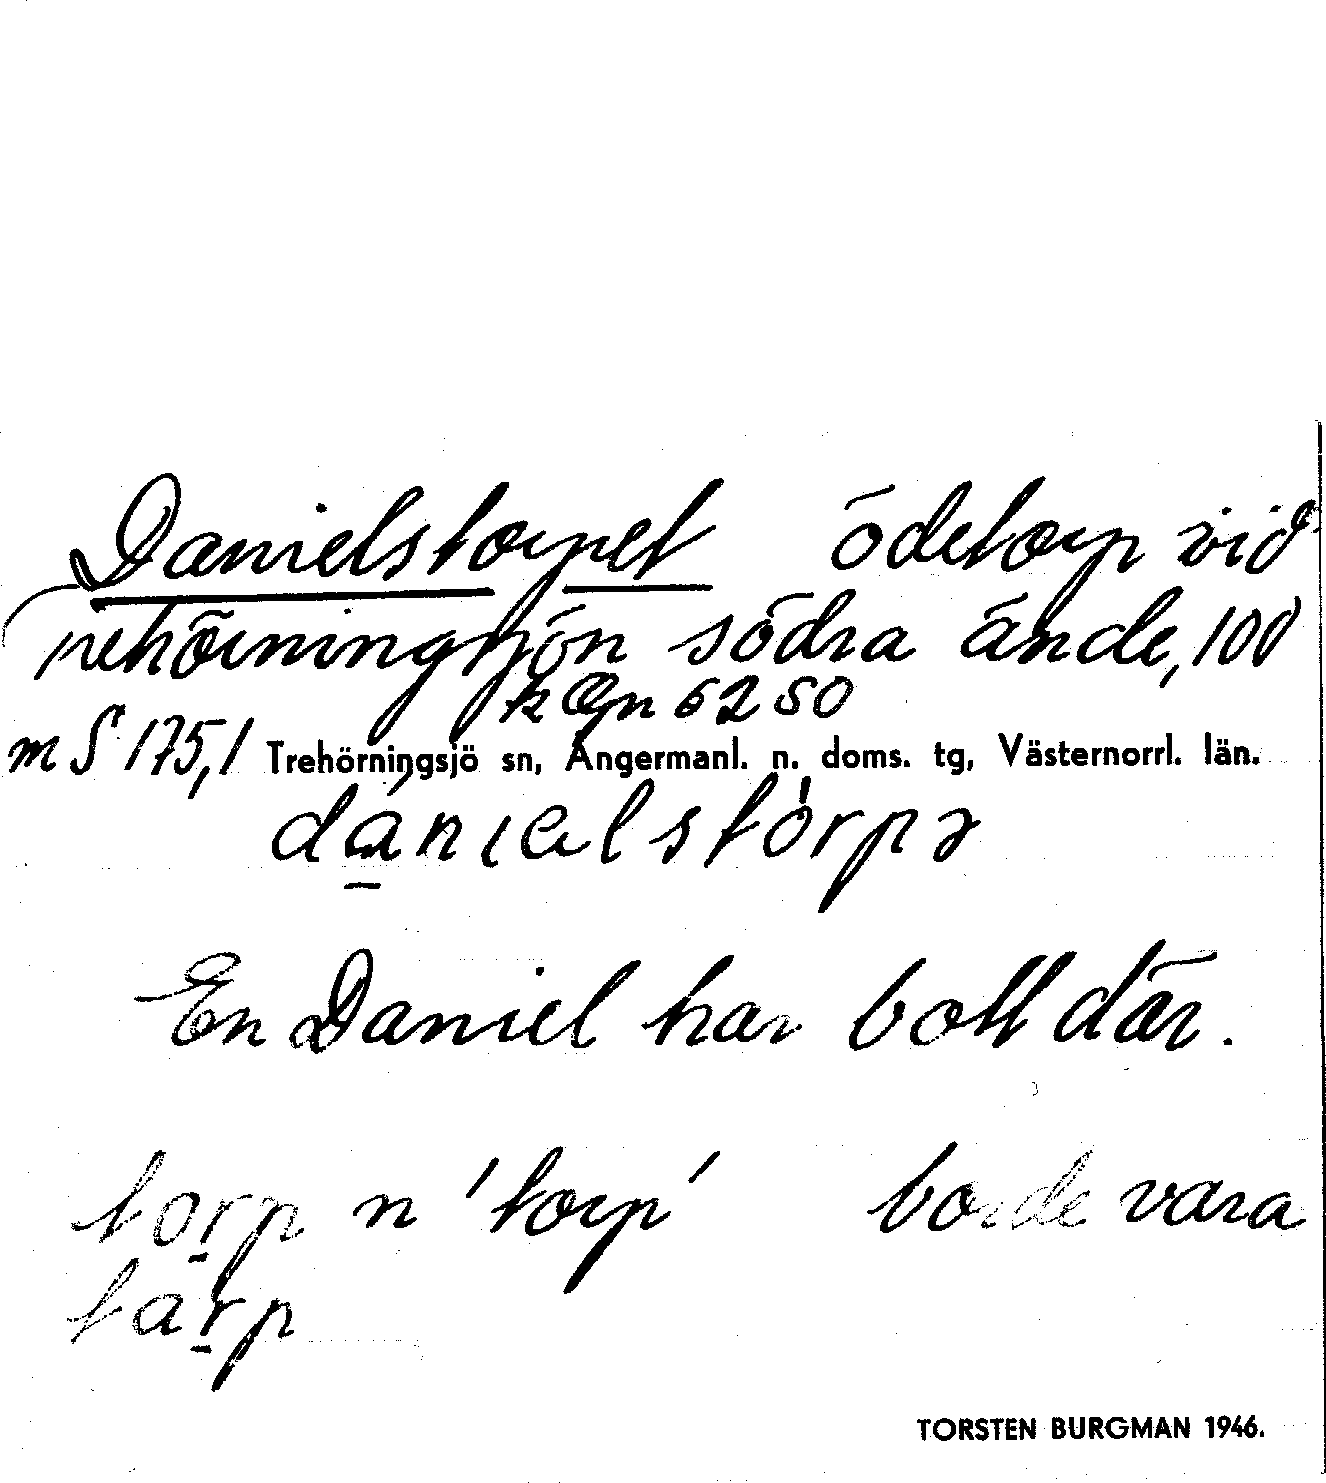 Danielstorpet ödetorp vid
Trehörningsjön södra ände, 100
k Ögn 6250
m S 175,1 Trehörningsjö sn, Ångermanl. n. doms. tg, Västernorrl. län.
En Daniel har bott där.
torp n 'torp' borde vara
tarp
TORSTEN BURGMAN 1946.